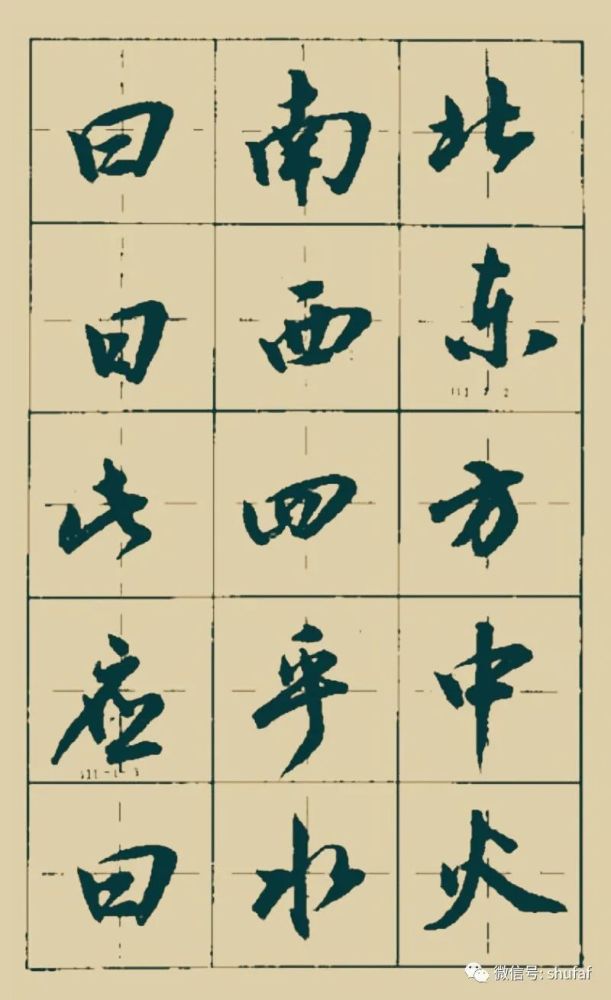 曰南北
曰西东
此四方
应乎中
曰水火
微信号: shufaf